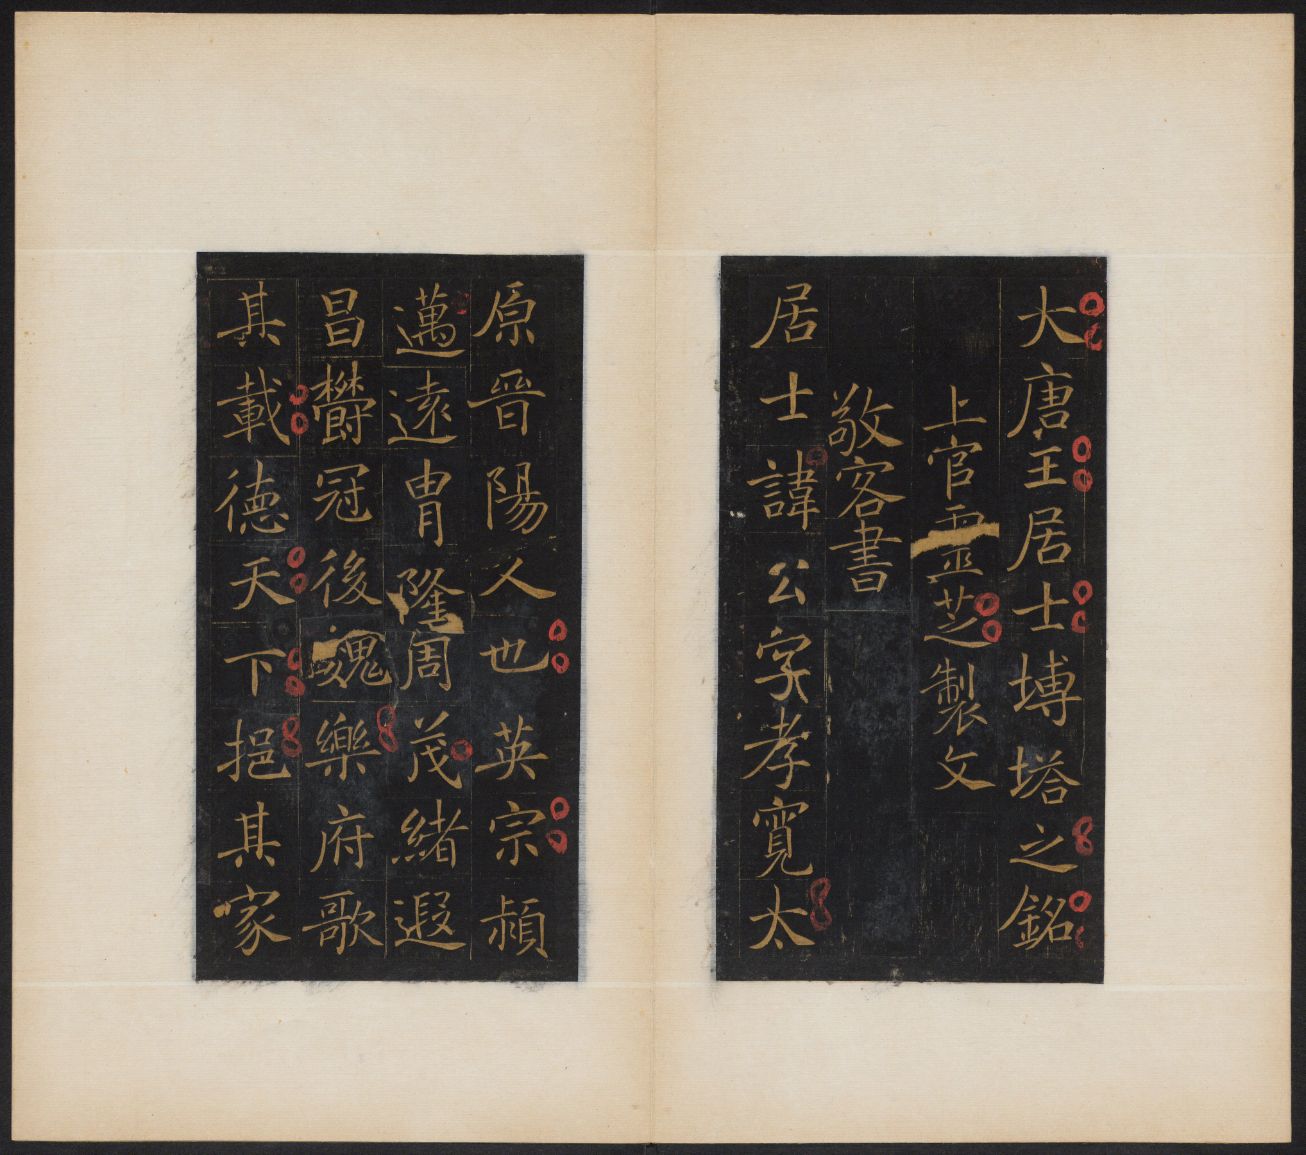 大唐王居士塼塔之銘
上官靈芝製文
敬客書
居士諱公字孝寬太
原晉陽人也英宗頴
邁遠胄隆周茂緒遐
昌欝冠後魏樂府歌
其載德天下挹其家